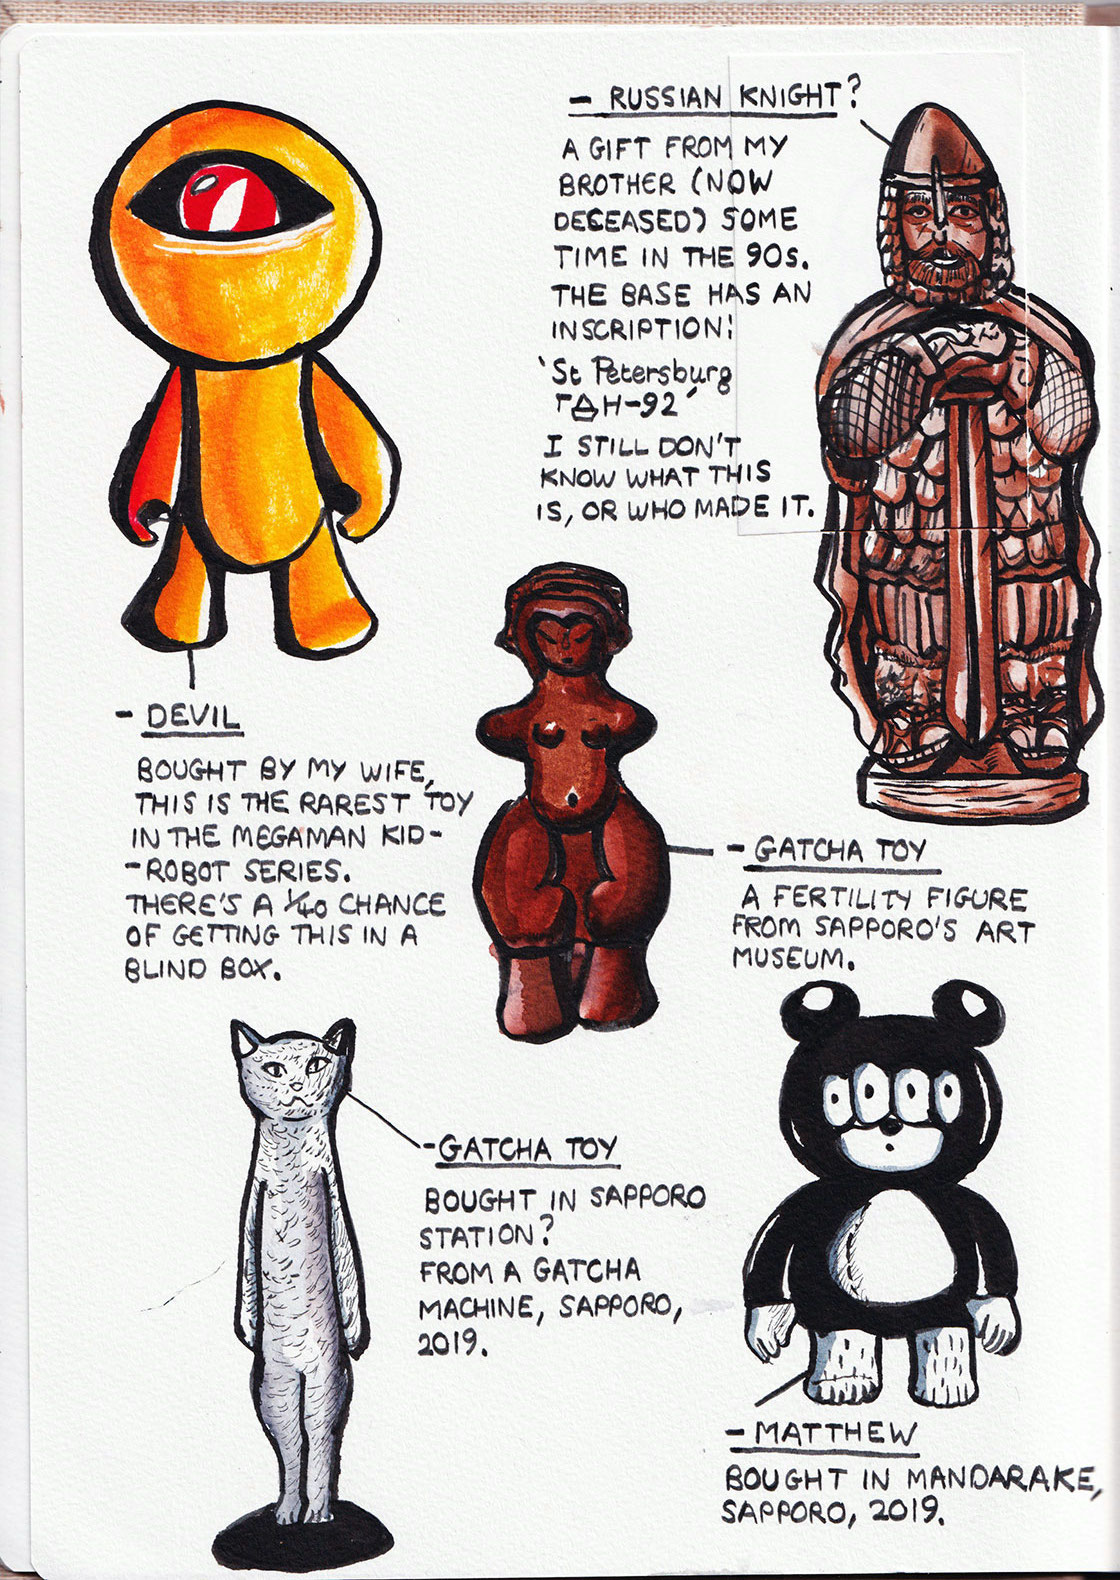 - RUSSIAN KNIGHT?
A GIFT FROM MY
BROTHER (NOW
DECEASED) SOME
TIME IN THE 90s.
THE BASE HAS AN
INSCRIPTION:
'St Petersburg
ГДН-92'
I STILL DON'T
KNOW WHAT THIS
IS, OR WHO MADE IT.
- DEVIL
BOUGHT BY MY WIFE,
THIS IS THE RAREST TOY
IN THE MEGAMAN KID-
-ROBOT SERIES.
THERE'S A 1/40 CHANCE
OF GETTING THIS IN A
BLIND BOX.
- GATCHA TOY
A FERTILITY FIGURE
FROM SAPPORO'S ART
MUSEUM.
- GATCHA TOY
BOUGHT IN SAPPORO
STATION?
FROM A GATCHA
MACHINE, SAPPORO,
2019.
- MATTHEW
BOUGHT IN MANDARAKE,
SAPPORO, 2019.